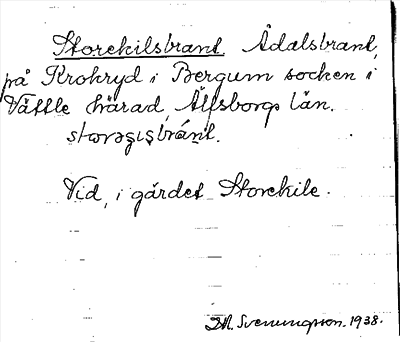 Storekilsbrant. Ådalsbrant,
på Krokryd i Bergum socken i
Vättle härad, Älfsborgs län.
Vid, i gärdet Storekile.
M. Svenungsson. 1938.